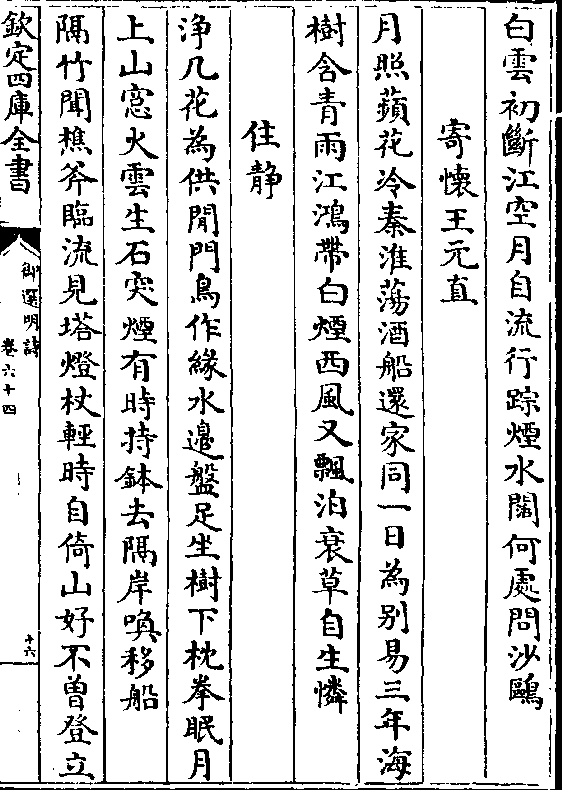 白雲初斷江空月自流行踪煙水闊何處問沙鷗
寄懷王元直
月照蘋花冷秦淮蕩酒船還家同一日為别易三年海
樹含青雨江鴻帶白煙西風又飄泊衰草自生憐
住静
淨几花為供閒門鳥作緣水邊盤足坐樹下枕拳眠月
上山窓火雲生石突煙有時持鉢去隔岸喚移船
隔竹聞樵斧臨流見塔燈杖輕時自倚山好不曾登立
欽定四庫全書
御選明詩
卷六十四
十六